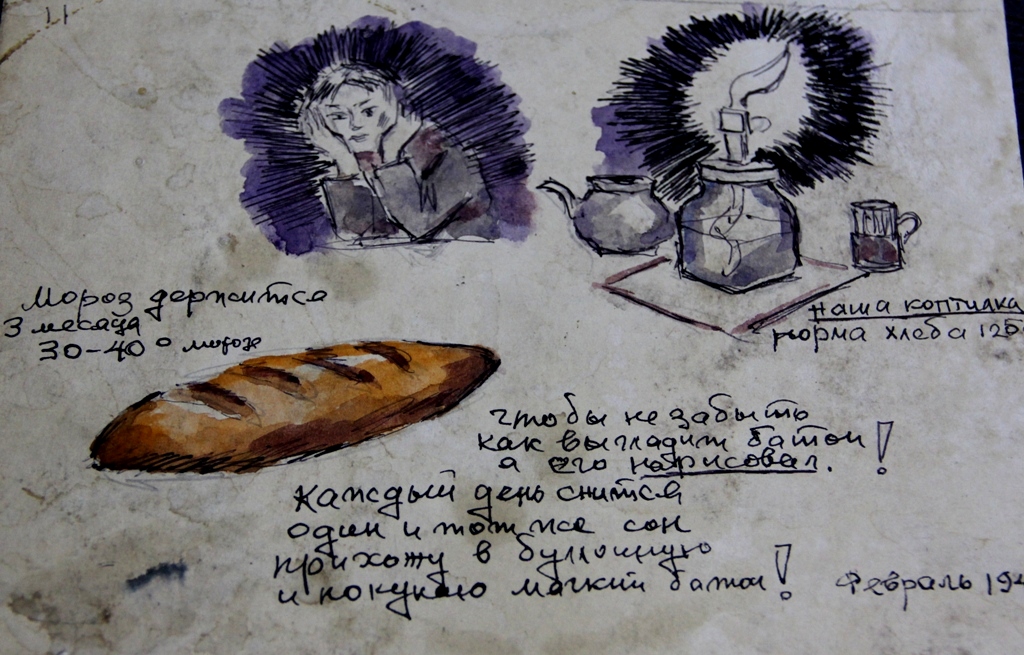 11
Мороз держится
3 месяца
30-40° мороза
наша коптилка
норма хлеба 125
чтобы не забыть
как выглядит батон
я его нарисовал. !
каждый день снится
один и тот же сон
прихожу в булочную
и покупаю мягкий батон!
Февраль 194